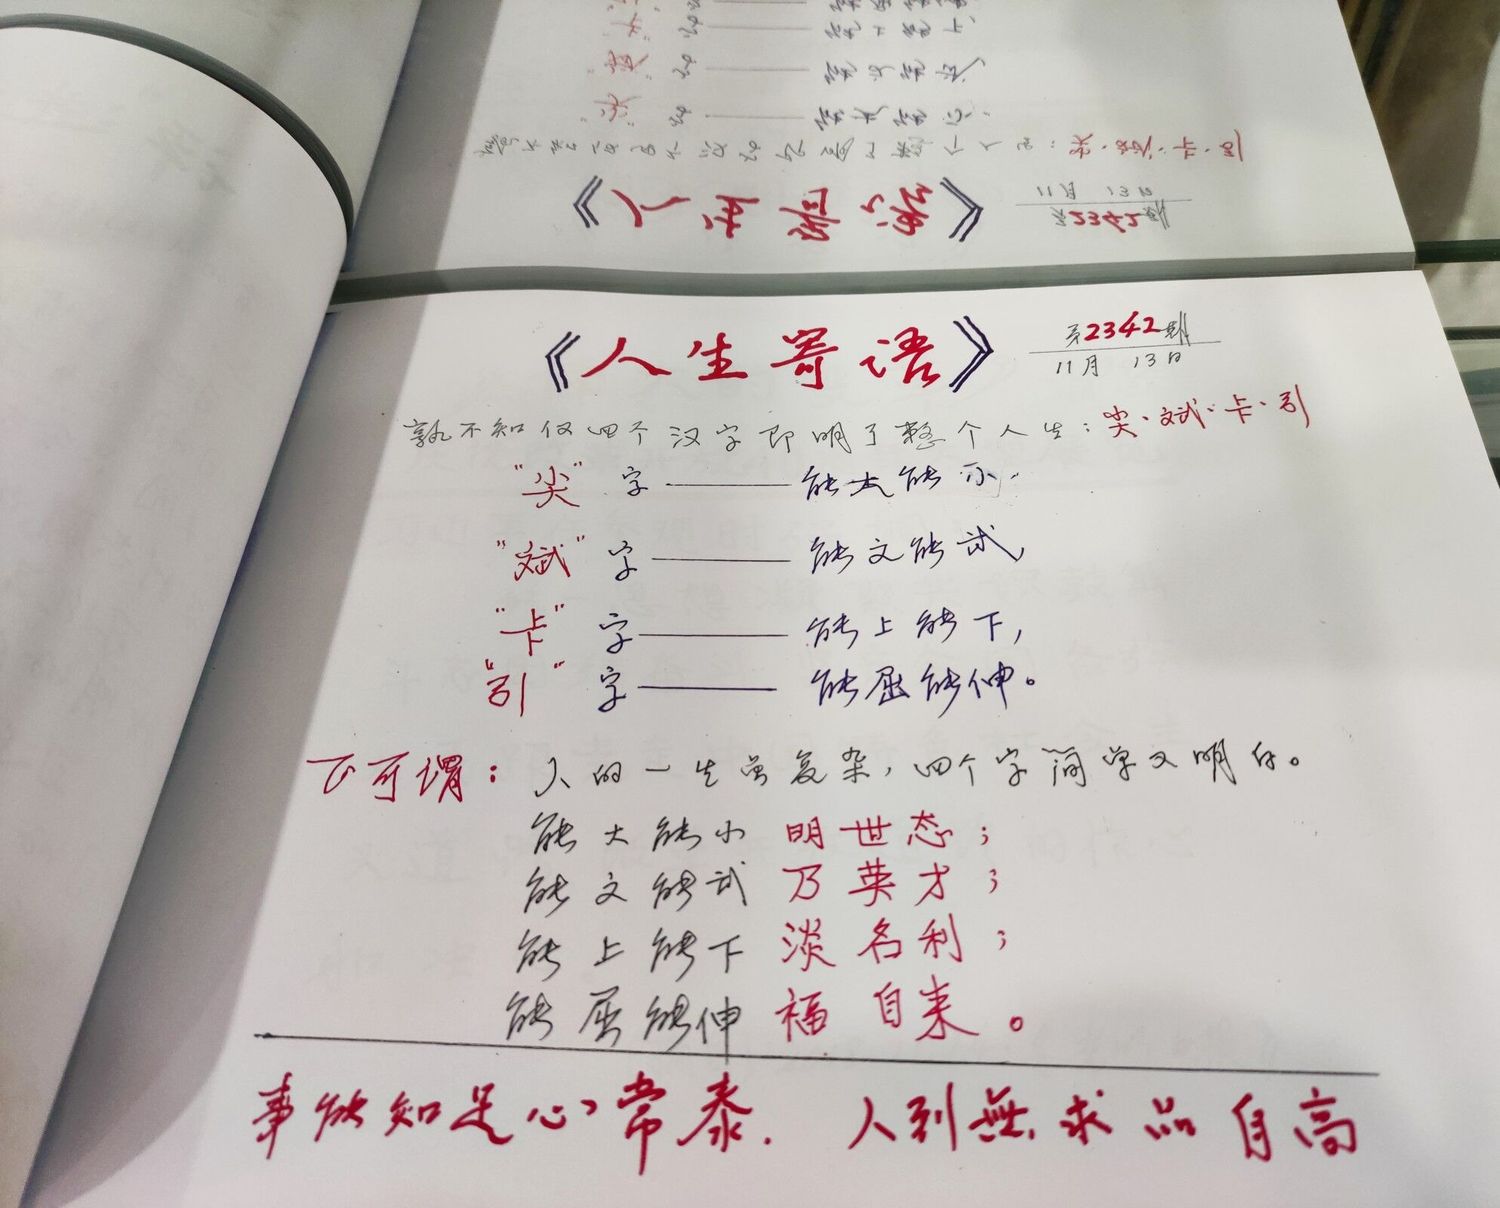 《人生寄语》 第2342期
11月 13日
孰不知仅四个汉字即明了整个人生：尖·斌·卡·引
"尖"字——能大能小.
"斌"字——能文能武,
"卡"字——能上能下,
"引"字——能屈能伸。
正可谓：人的一生虽复杂，四个字简单又明白。
能大能小明世态；
能文能武乃英才；
能上能下淡名利；
能屈能伸福自来。
事能知足心常泰. 人到無求品自高